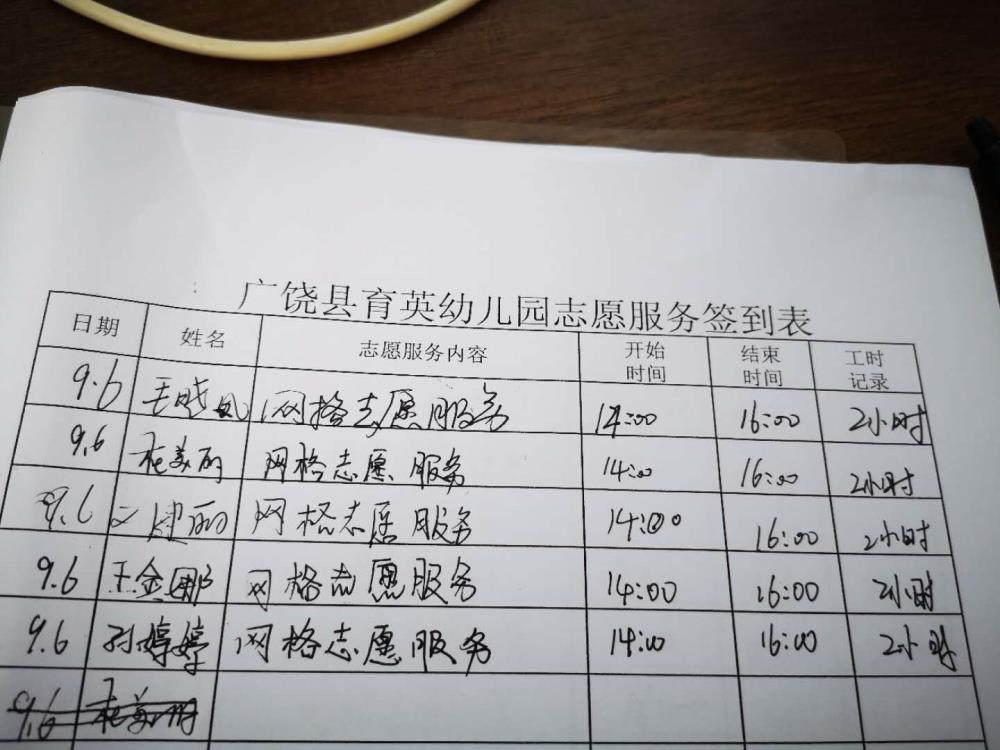 广饶县育英幼儿园志愿服务签到表
日期 姓名 志愿服务内容 开始时间 结束时间 工时记录
9.6 王晓凤 网格志愿服务 14:00 16:00 2小时
9.6 美丽 网格志愿服务 14:00 16:00 2小时
9.6 建丽 网格志愿服务 14:00 16:00 2小时
9.6 王金娜 网格志愿服务 14:00 16:00 2小时
9.6 孙婷婷 网格志愿服务 14:00 16:00 2小时
9.6